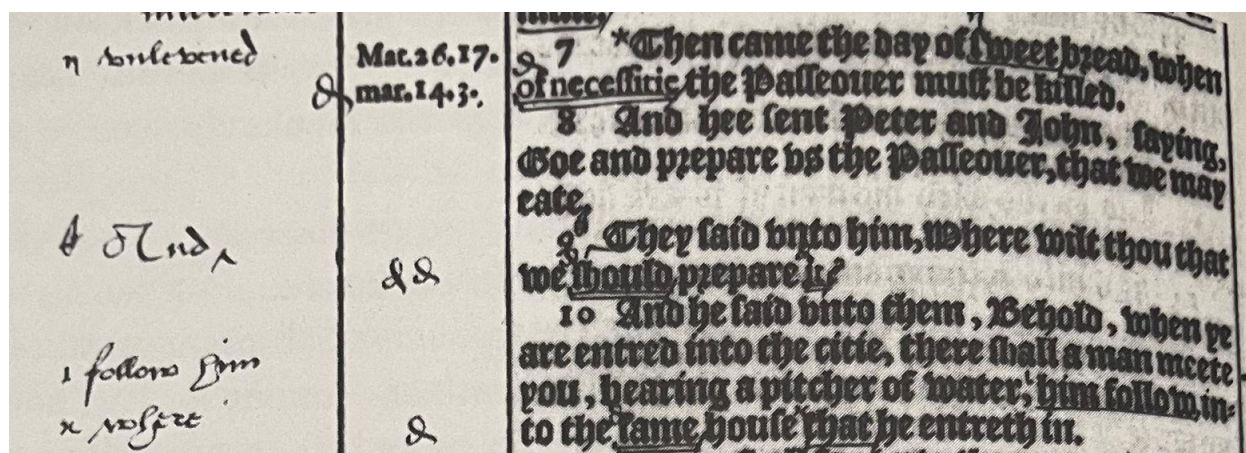 η vnlevened
And
ι follow him
κ where
Mat.26.17.
mar.14.3.
7 *Then came the day of ſweet bread, when
of neceſſitie the Paſſeouer muſt be killed.
8 And hee ſent Peter and John, ſaying,
Goe and prepare vs the Paſſeouer, that we may
eate.
9 They ſaid vnto him, Where wilt thou that
we ſhould prepare it?
10 And he ſaid vnto them, Behold, when ye
are entred into the citie, there ſhall a man meete
you, bearing a pitcher of water, him follow in-
to the ſame houſe that he entreth in.